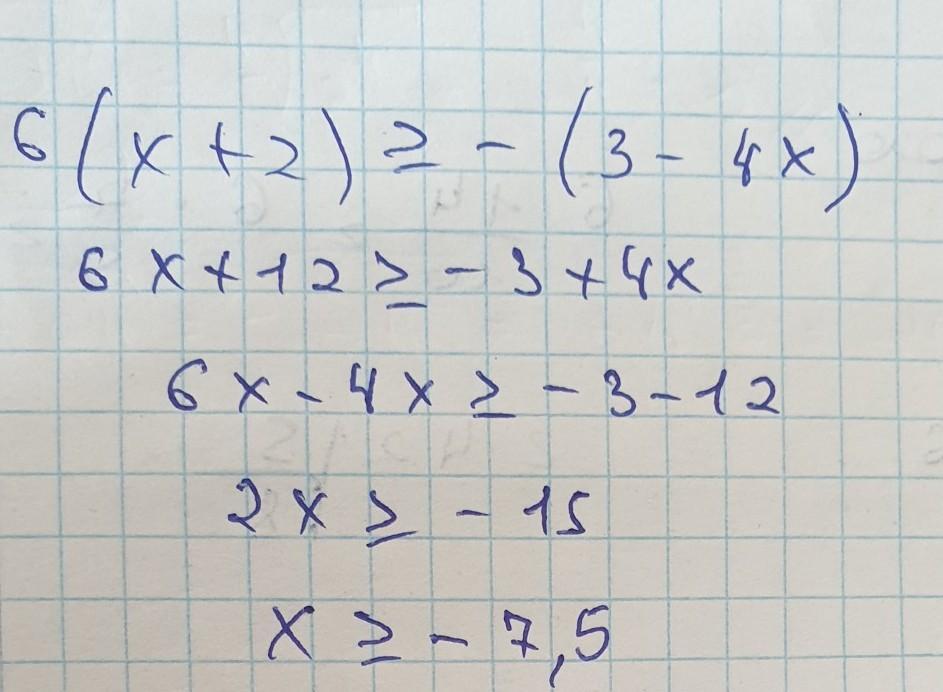 6(x+2) ≥ -(3-4x)
6x+12 ≥ -3+4x
6x-4x ≥ -3-12
2x ≥ -15
x ≥ -7,5